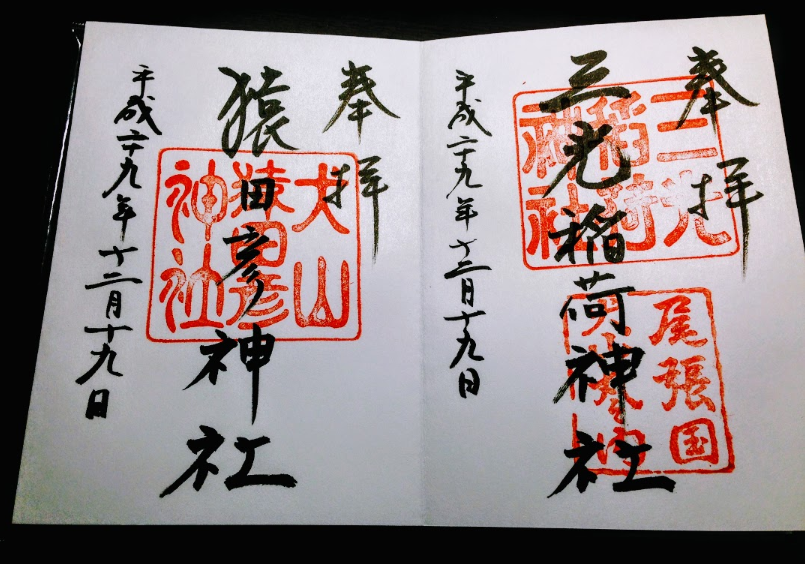 奉拝
三光稲荷神社
三光
稲荷
神社
尾張国
平成二十九年十二月十九日
奉拝
猿田彦神社
犬山
猿田彦
神社
平成二十九年十二月十九日